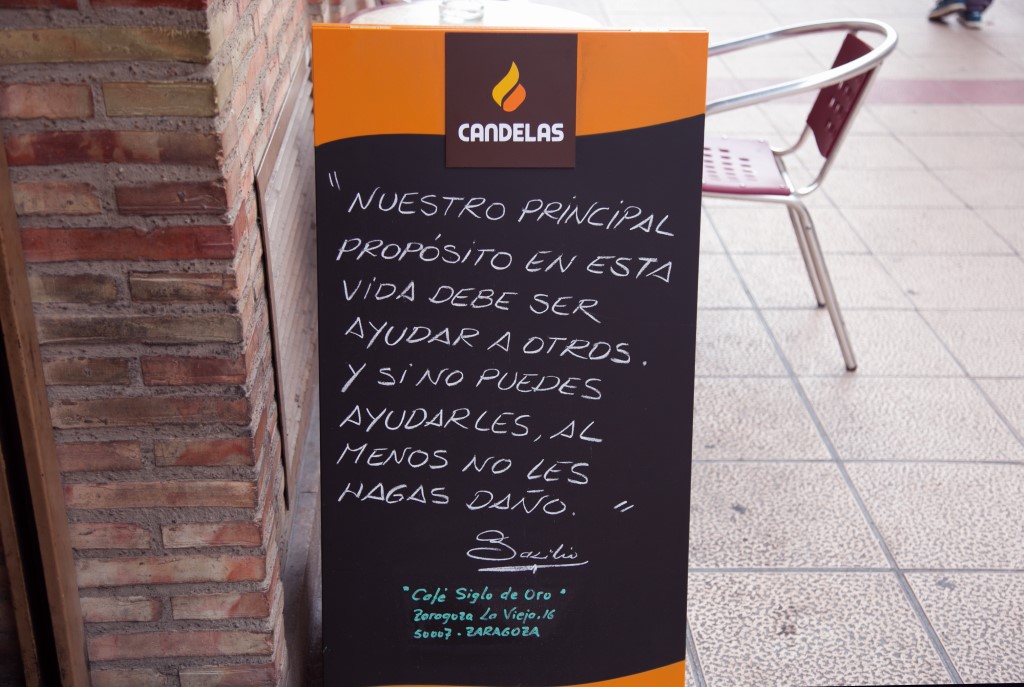 CANDELAS
"NUESTRO PRINCIPAL
PROPÓSITO EN ESTA
VIDA DEBE SER
AYUDAR A OTROS.
Y SI NO PUEDES
AYUDARLES, AL
MENOS NO LES
HAGAS DAÑO. "
"Café Siglo de Oro"
Zaragoza La Vieja, 16
50007 - ZARAGOZA